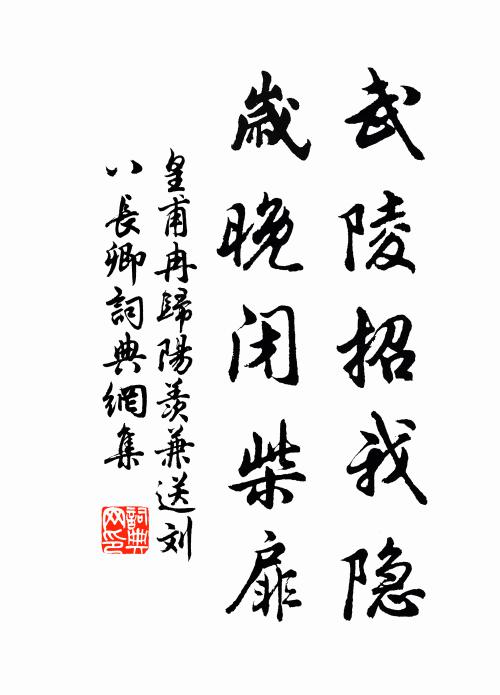 武陵招我隐
歲晚闭柴扉
皇甫冉歸陽羨兼送刘
八長卿詞典網集
詞典网印